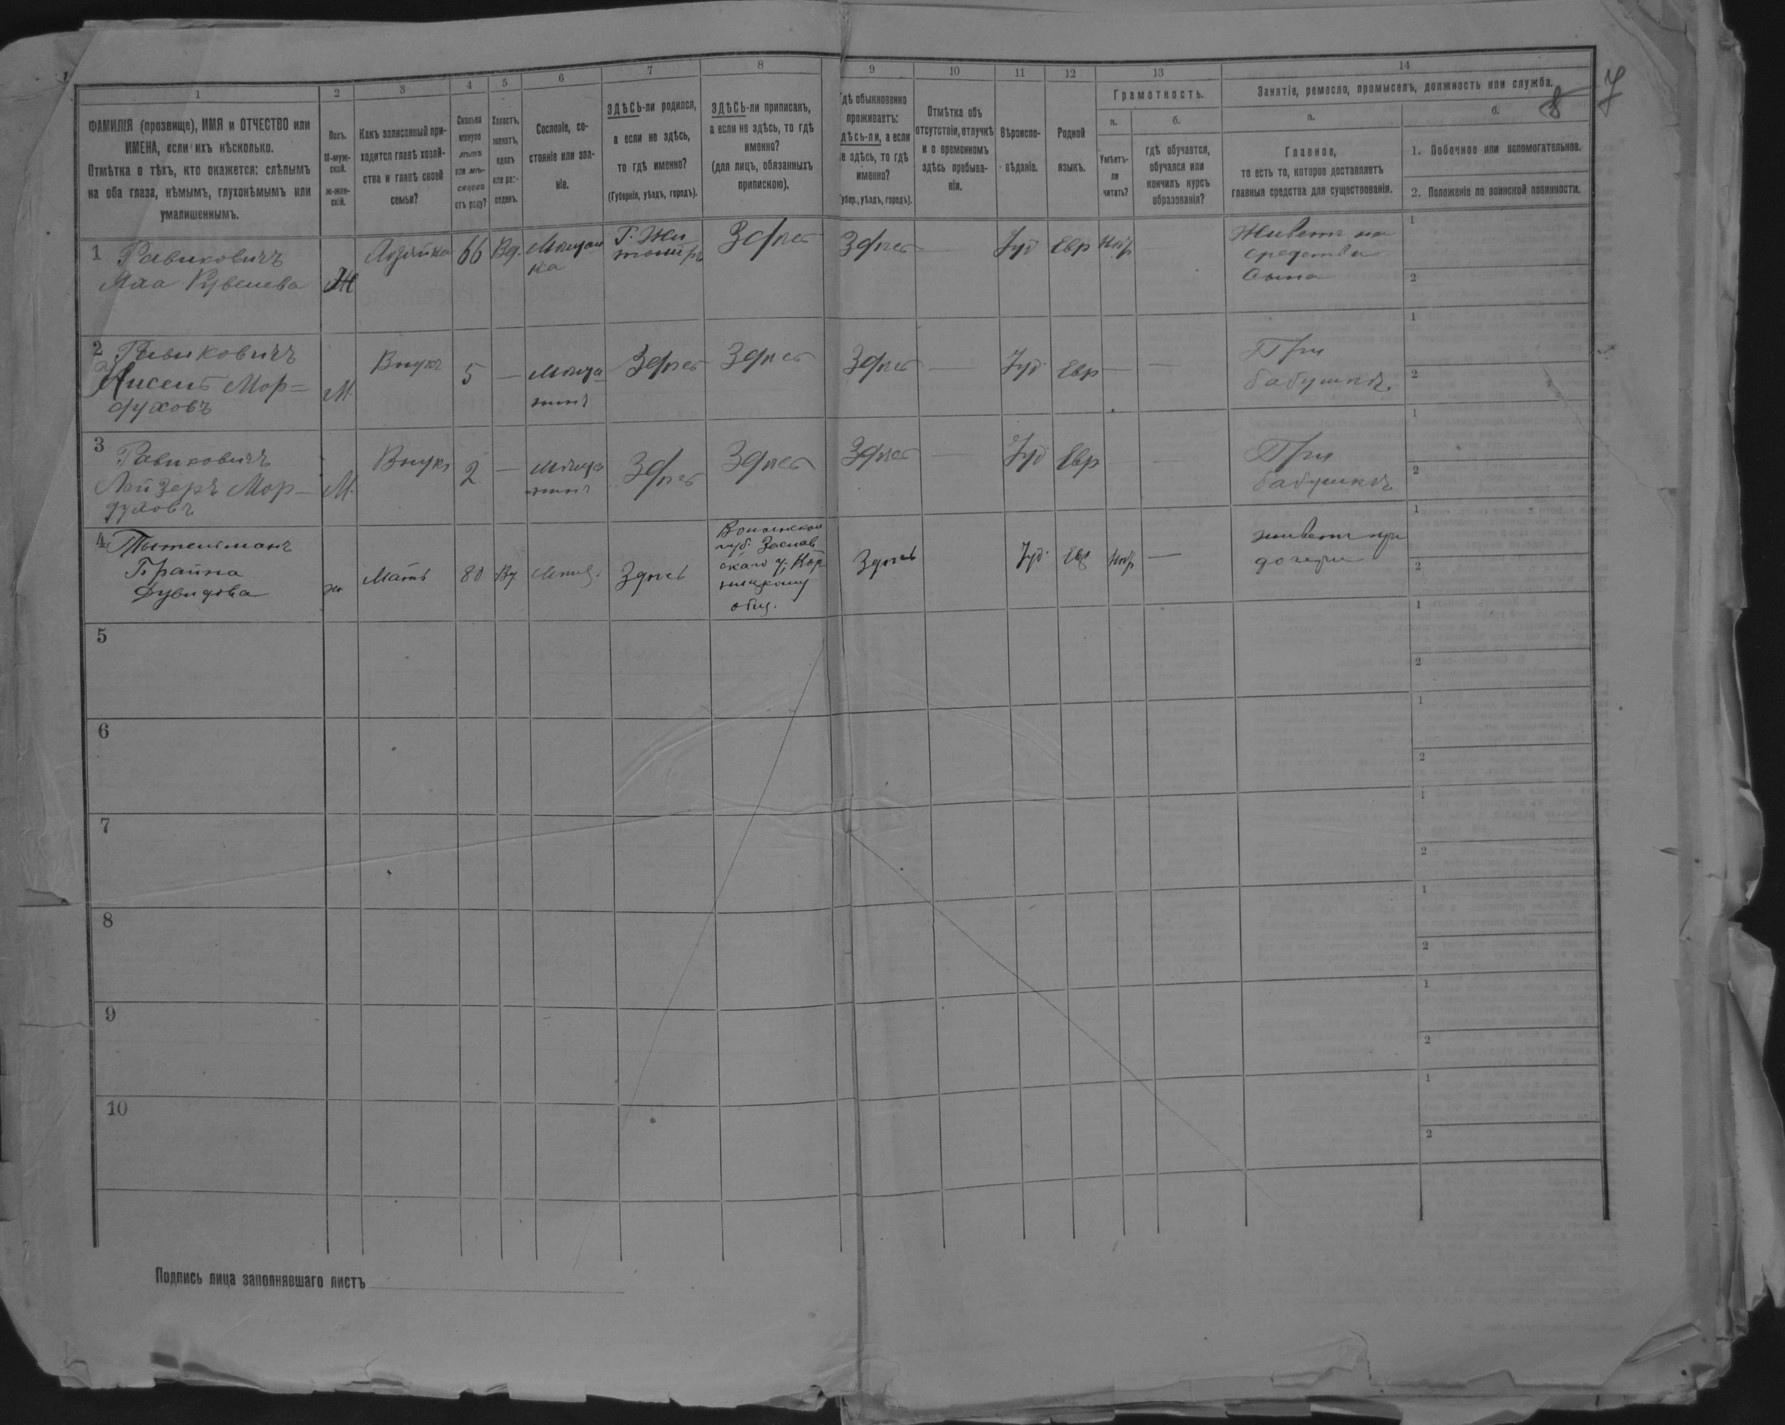 1
2
3
4
5
6
7
8
9
10
11
12
13
14
ФАМИЛІЯ (прозвище), ИМЯ и ОТЧЕСТВО или
ИМЕНА, если ихъ нѣсколько.
Отмѣтка о тѣхъ, кто окажется: слѣпымъ
на оба глаза, нѣмымъ, глухонѣмымъ или
умалишеннымъ.
Полъ.
М-муж-
ской.
ж-жен-
скій.
Какъ записанный при-
ходится главѣ хозяй-
ства и главѣ своей
семьи?
Сколько
минуло
лѣтъ
или мѣ-
сяцевъ
отъ роду?
Холостъ,
женатъ,
вдовъ
или раз-
веденъ.
Сословіе, со-
стояніе или зва-
ніе.
ЗДѢСЬ-ли родился,
а если не здѣсь,
то гдѣ именно?
(Губернія, уѣздъ, городъ).
ЗДѢСЬ-ли приписанъ,
а если не здѣсь, то гдѣ
именно?
(для лицъ, обязанныхъ
припискою).
гдѣ обыкновенно
проживаетъ:
здѣсь-ли, а если
не здѣсь, то гдѣ
именно?
(Губер., уѣздъ, городъ).
Отмѣтка объ
отсутствіи, отлучкѣ
и о временномъ
здѣсь пребыва-
ніи.
Вѣроиспо-
вѣданіе.
Родной
языкъ.
Грамотность.
а.
Умѣетъ-
ли
читать?
б.
гдѣ обучается,
обучался или
кончилъ курсъ
образованія?
Занятіе, ремесло, промыселъ, должность или служба.
а.
Главное,
то есть то, которое доставляетъ
главныя средства для существованія.
б.
1. Побочное или вспомогательное.
2. Положеніе по воинской повинности.
8 7
1 Равиковичъ Ж Хозяйка 66 Вд. Мѣщан Г. Жи Здѣсь Здѣсь — Іуд Евр нѣтъ — Живетъ на 1
ка томиръ средства
сына 2
2 Равиковичъ М. Внукъ 5 — мѣща Здѣсь Здѣсь Здѣсь — Іуд Евр — — При 1
Мор= нинъ бабушкѣ. 2
духовъ
3 Равиковичъ М. Внукъ 2 — мѣща Здѣсь Здѣсь Здѣсь — Іуд Евр — При 1
Лейзеръ Мор— нинъ бабушкѣ 2
духовъ
4 Брайна ж Мать 80 Вд Мѣщ. Здѣсь Волынской Здѣсь Іуд Евр нѣтъ — живетъ при 1
Дувидова губ. Заслав дочери 2
скаго у.
общ.
5 1
2
6 1
2
7 1
2
8 1
2
9 1
2
10 1
2
Подпись лица заполнявшаго листъ